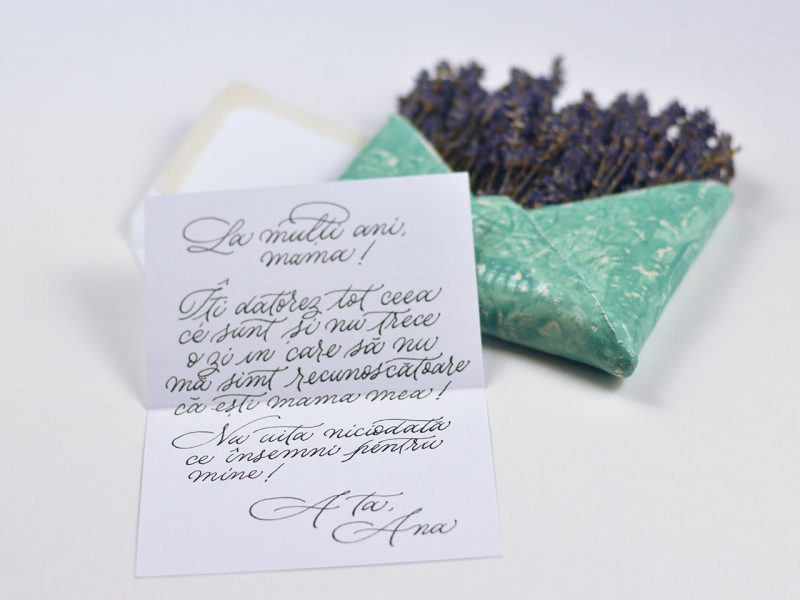 La mulți ani,
mama!
Îți datorez tot ceea
ce sunt și nu trece
o zi în care să nu
mă simt recunoscătoare
că ești mama mea!
Nu uita niciodată
ce însemni pentru
mine!
A ta,
Ana